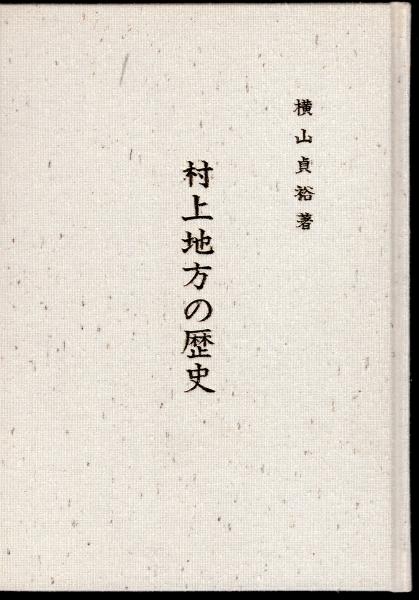 横山貞裕著
村上地方の歴史